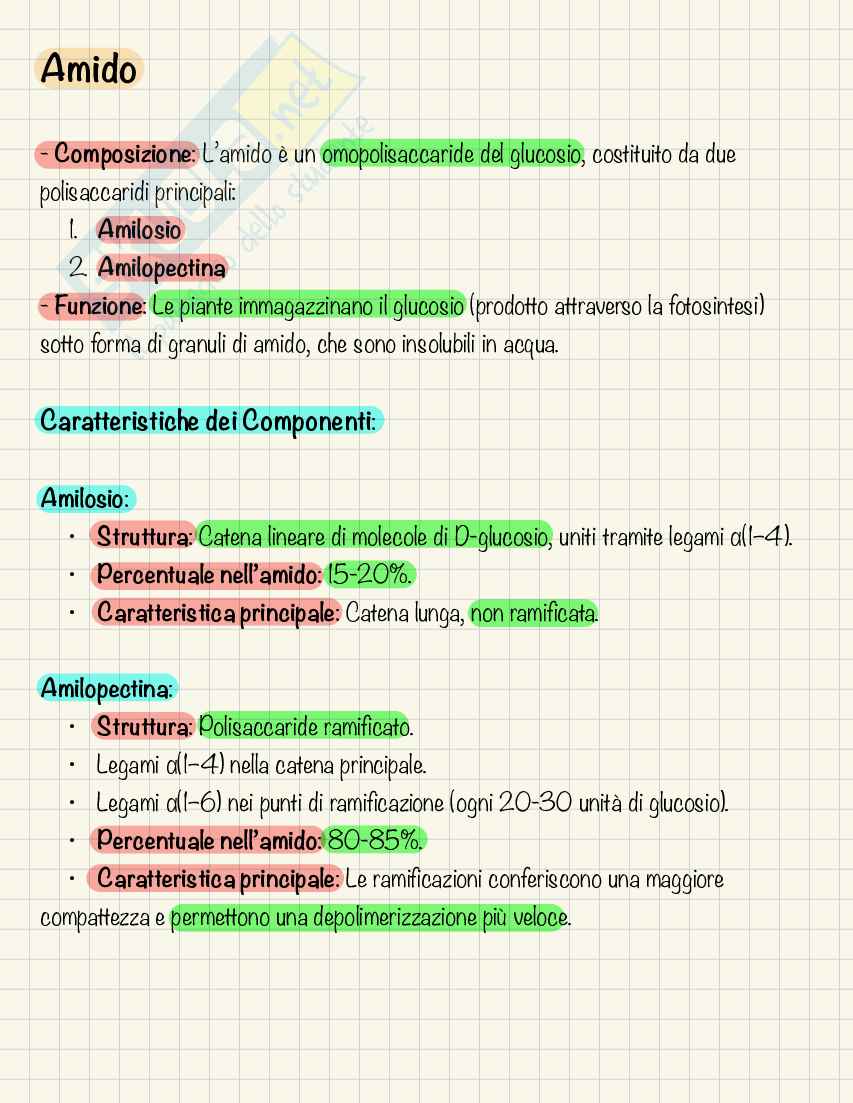 Amido
- Composizione: L'amido è un omopolisaccaride del glucosio, costituito da due
polisaccaridi principali:
1. Amilosio
2. Amilopectina
- Funzione: Le piante immagazzinano il glucosio (prodotto attraverso la fotosintesi)
sotto forma di granuli di amido, che sono insolubili in acqua.
Caratteristiche dei Componenti:
Amilosio:
• Struttura: Catena lineare di molecole di D-glucosio, uniti tramite legami α(1–4).
• Percentuale nell'amido: 15-20%.
• Caratteristica principale: Catena lunga, non ramificata.
Amilopectina:
• Struttura: Polisaccaride ramificato.
• Legami α(1–4) nella catena principale.
• Legami α(1–6) nei punti di ramificazione (ogni 20-30 unità di glucosio).
• Percentuale nell'amido: 80-85%.
• Caratteristica principale: Le ramificazioni conferiscono una maggiore
compattezza e permettono una depolimerizzazione più veloce.
.net
dello studente